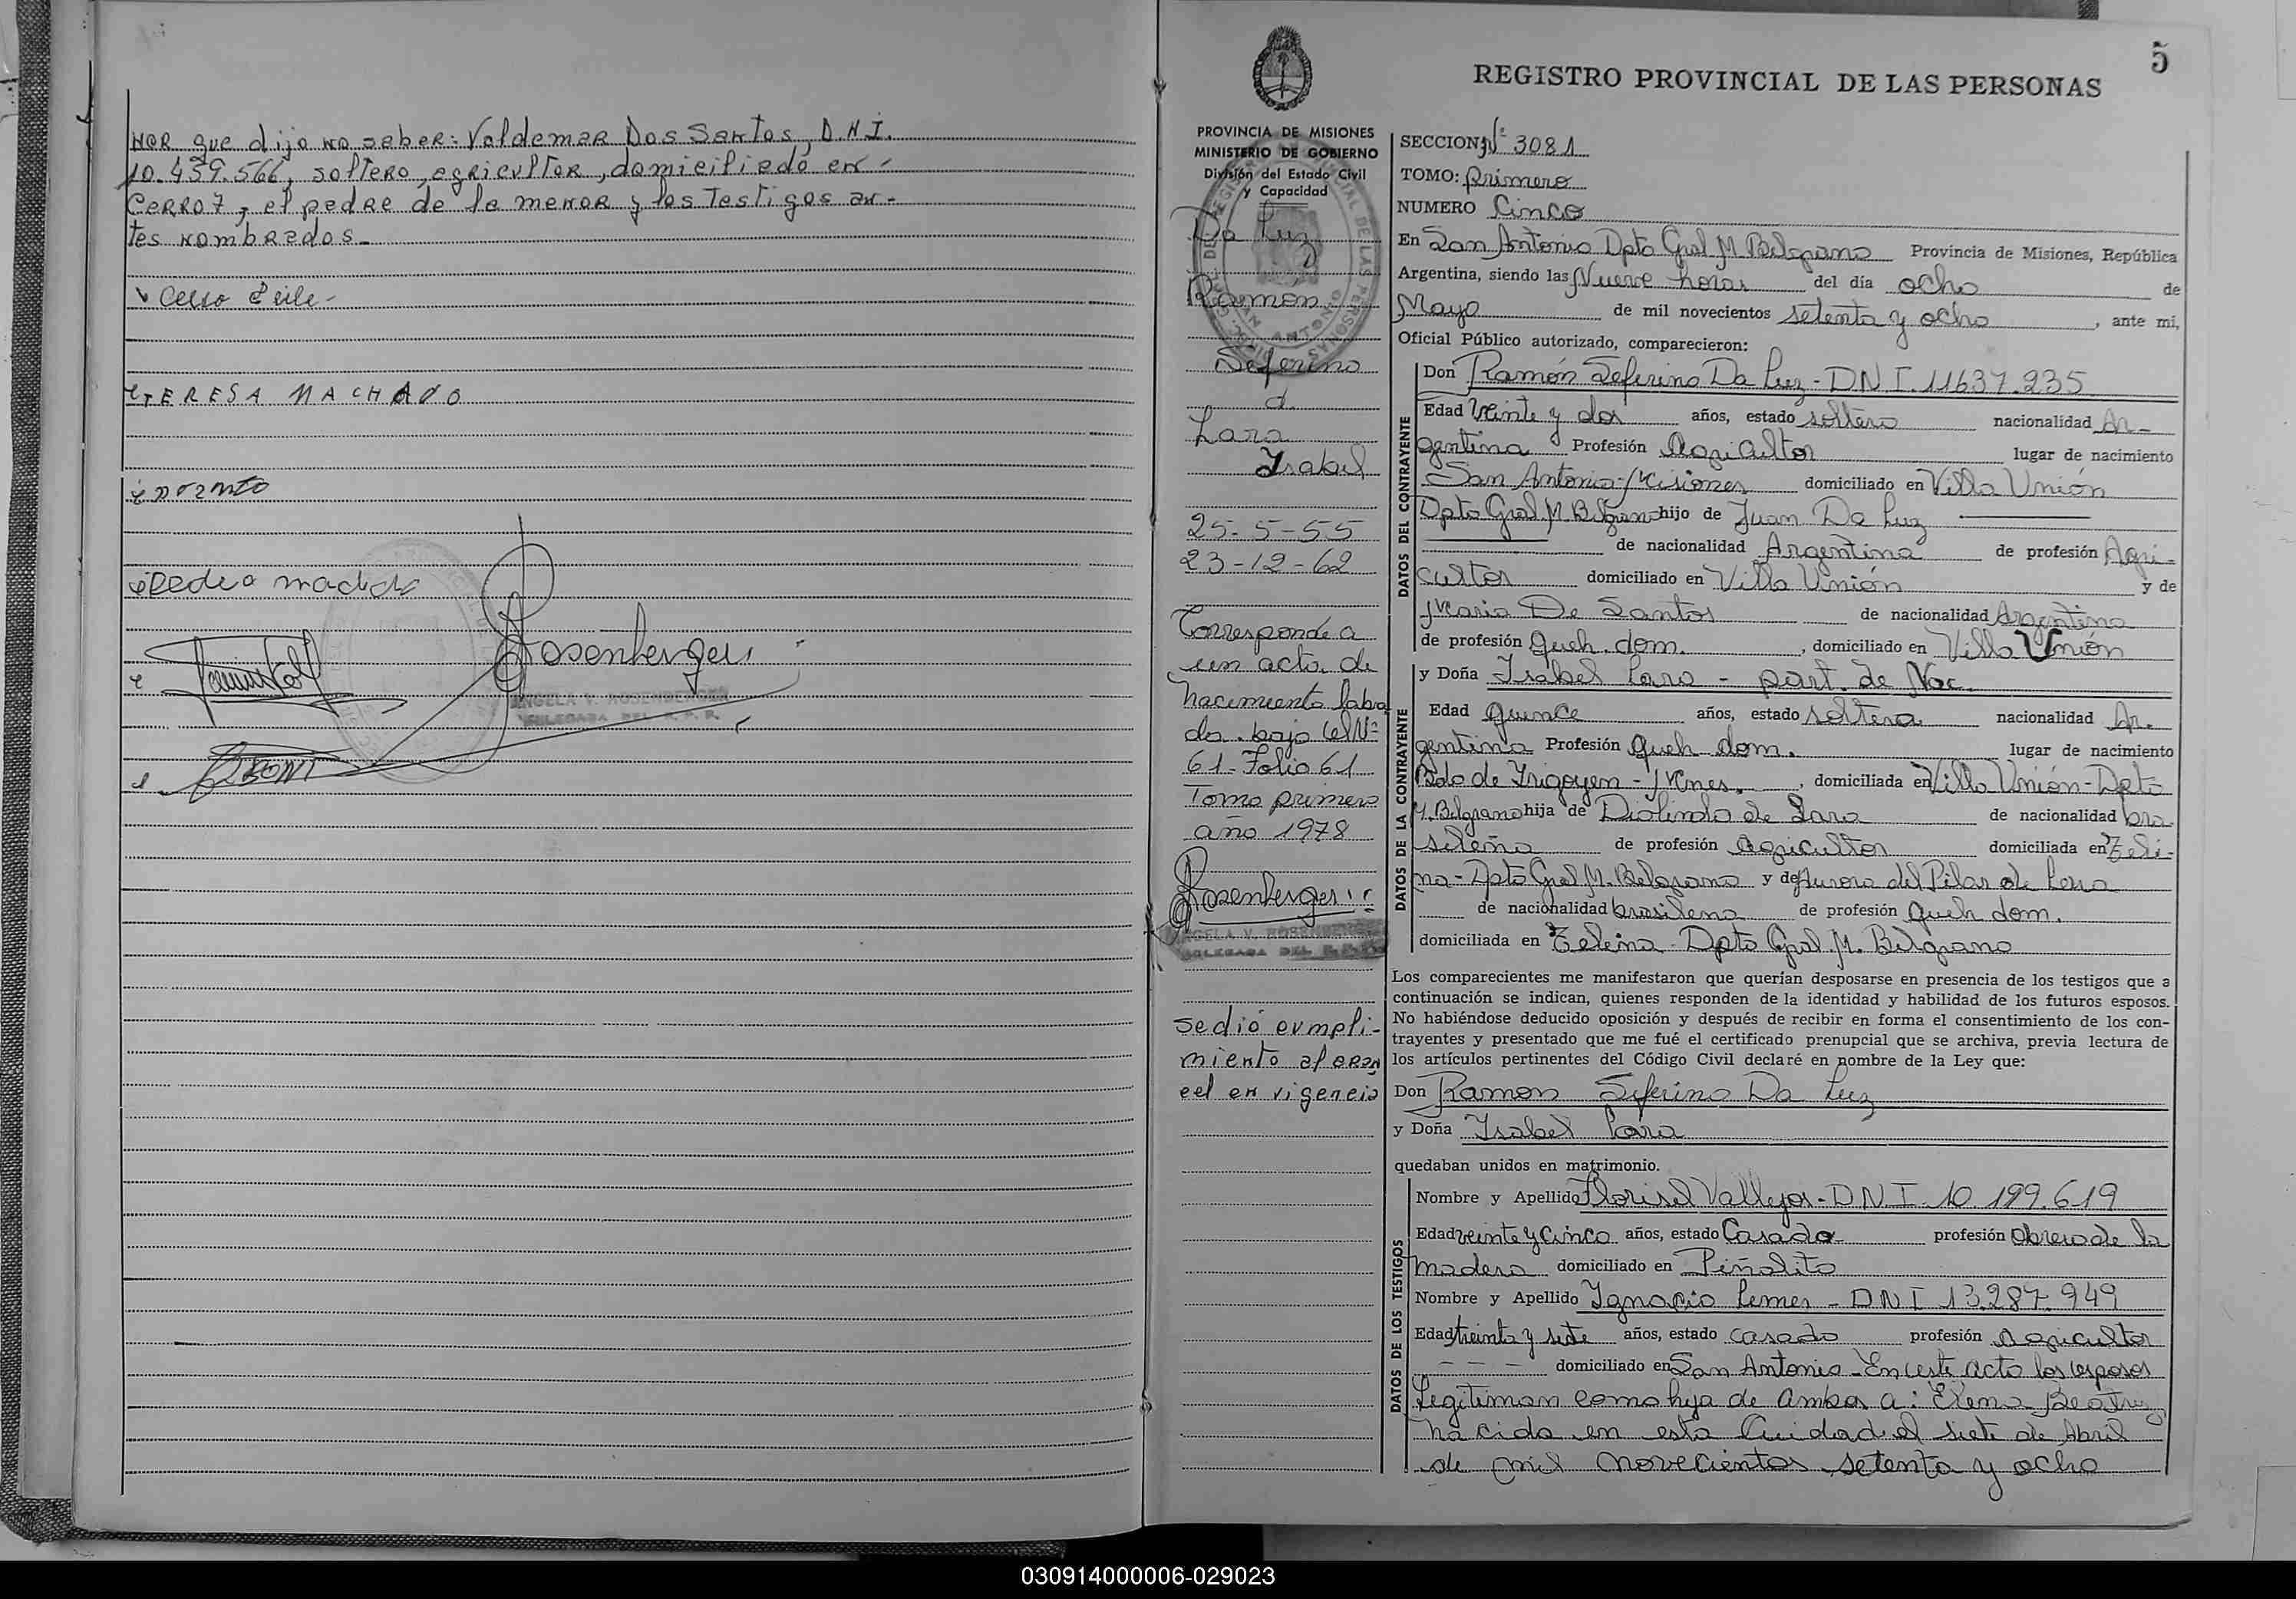 NOR que dijo no saber: Valdemar Dos Santos, D.N.I.
10.459.566, soltero, agricultor, domiciliado en -
Cerro 7, el padre de la menor y los testigos an-
tes nombrados.-
TERESA MACHADO
Rosenberger
ANGELA V. ROSENBERGER
DELEGADA DEL R. P. P.
5
REGISTRO PROVINCIAL DE LAS PERSONAS
PROVINCIA DE MISIONES
MINISTERIO DE GOBIERNO
División del Estado Civil
y Capacidad
Da Luz
Ramon
Seferino
Lara
Isabel
25-5-55
23-12-62
Corresponde a
un acta de
Nacimiento labra
da bajo el Nº
61-Folio 61
Tomo primero
año 1978
Rosenberger
ANGELA V. ROSENBERGER
DELEGADA DEL R.P.P.
Se dió cumpli-
miento al aran
cel en vigencia
SECCION Nº 3081
TOMO: primero
NUMERO Cinco
En San Antonio Dpto Gral M Belgrano Provincia de Misiones, República
Argentina, siendo las Nueve horas del día ocho de
Mayo de mil novecientos setenta y ocho, ante mi,
Oficial Público autorizado, comparecieron:
DATOS DEL CONTRAYENTE
Don Ramón Seferino Da Luz - DNI. 11637.235
Edad Veinte y dos años, estado soltero nacionalidad Ar-
gentina Profesión Agricultor lugar de nacimiento
San Antonio-Misiones domiciliado en Villa Unión
Dpto Gral M. Belgrano hijo de Juan Da Luz
de nacionalidad Argentina de profesión Agri-
cultor domiciliado en Villa Unión y de
Maria De Santos de nacionalidad Argentina
de profesión Queh. dom., domiciliado en Villa Unión
DATOS DE LA CONTRAYENTE
y Doña Isabel Lara - part. de Nac.
Edad quince años, estado soltera nacionalidad Ar.
gentina Profesión Queh dom. lugar de nacimiento
Bdo de Irigoyen - Mnes., domiciliada en Villa Unión-Dpto
M. Belgrano hija de Diolindo de Lara de nacionalidad bra
sileña de profesión Agricultor domiciliada en
Dpto Gral M. Belgrano y de Aurora del Pilar de Lara
de nacionalidad brasilena de profesión Queh dom.
domiciliada en Dpto Gral. M. Belgrano
Los comparecientes me manifestaron que querían desposarse en presencia de los testigos que a
continuación se indican, quienes responden de la identidad y habilidad de los futuros esposos.
No habiéndose deducido oposición y después de recibir en forma el consentimiento de los con-
trayentes y presentado que me fué el certificado prenupcial que se archiva, previa lectura de
los artículos pertinentes del Código Civil declaré en nombre de la Ley que:
Don Ramon Seferino Da Luz
y Doña Isabel Lara
quedaban unidos en matrimonio.
DATOS DE LOS TESTIGOS
Nombre y Apellido Florisel Vallejos - DNI - 10.199.619
Edad veinte y Cinco años, estado Casado profesión Obrero de la
madera domiciliado en Piñalito
Nombre y Apellido Ignacio Lemes - DNI 13.287.949
Edad treinta y siete años, estado casado profesión Agricultor
- - - domiciliado en San Antonio - En este acto los esposos
Legitiman como hija de ambos a: Elena Beatriz
nacida en esta Ciudad el siete de Abril
de mil novecientos setenta y ocho
030914000006-029023